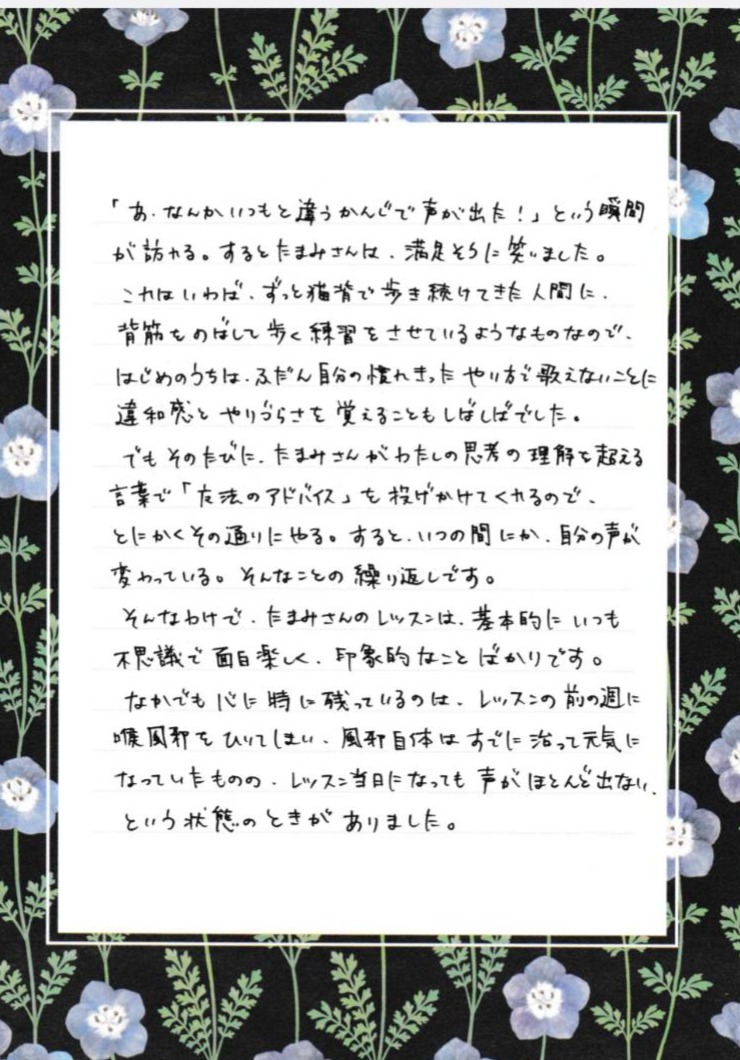 「あ、なんかいつもと違うかんじで声が出た！」という瞬間
が訪れる。するとたまみさんは、満足そうに笑いました。
これはいわば、ずっと猫背で歩き続けてきた人間に、
背筋をのばして歩く練習をさせているようなものなので、
はじめのうちは、ふだん自分の慣れきったやり方で歌えないことに
違和感とやりづらさを覚えることもしばしばでした。
でもそのたびに、たまみさんがわたしの思考の理解を超える
言葉で「方法のアドバイス」を投げかけてくれるので、
とにかくその通りにやる。すると、いつの間にか、自分の声が
変わっている。そんなことの繰り返しです。
そんなわけで、たまみさんのレッスンは、基本的にいつも
不思議で面白楽しく、印象的なことばかりです。
なかでも心に時に残っているのは、レッスンの前の週に
喉風邪をひいてしまい、風邪自体はすでに治って元気に
なっていたものの、レッスン当日になっても声がほとんど出ない、
という状態のときがありました。